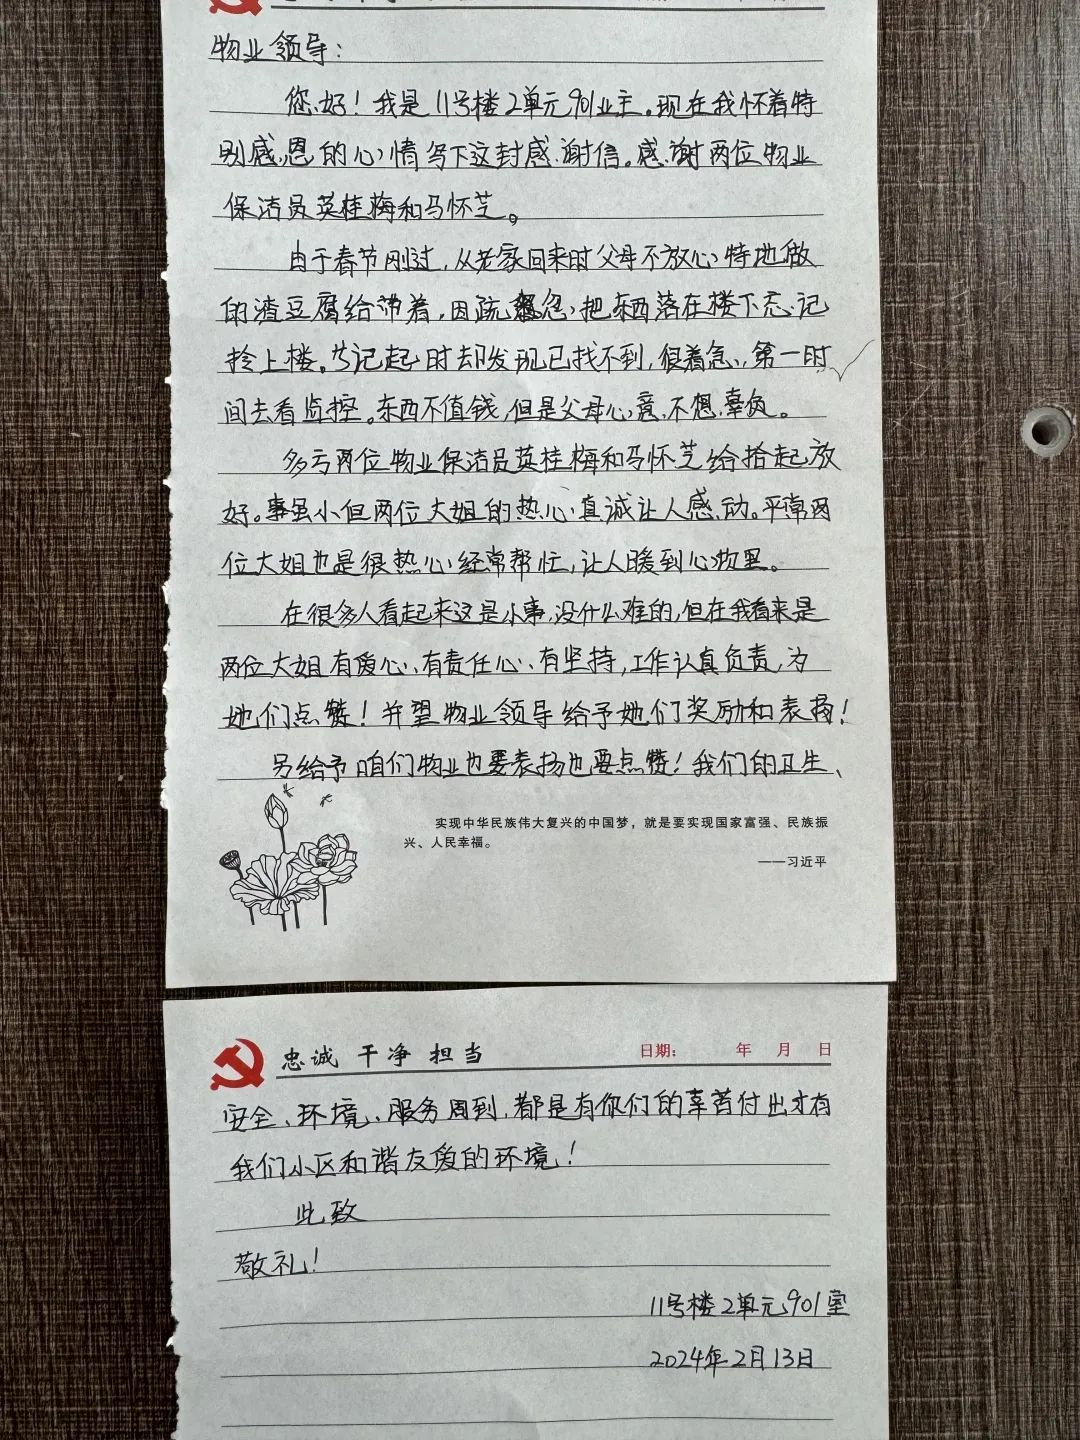 物业领导：
您好！我是11号楼2单元901业主。现在我怀着特
别感恩的心情写下这封感谢信。感谢两位物业
保洁员英桂梅和马怀芝。
由于春节刚过，从老家回来时父母不放心特地做
的渣豆腐给带着，因疏忽，把东西落在楼下忘记
拎上楼。当记起时却发现已找不到，很着急，第一时
间去看监控。东西不值钱，但是父母心意，不想辜负。
多亏两位物业保洁员英桂梅和马怀芝给拾起放
好。事虽小但两位大姐的热心真诚让人感动。平常两
位大姐也是很热心经常帮忙，让人暖到心坎里。
在很多人看起来这是小事，没什么难的，但在我看来是
两位大姐有爱心、有责任心、有坚持，工作认真负责，为
她们点赞！并望物业领导给予她们奖励和表扬！
另给予咱们物业也要表扬也要点赞！我们的卫生、
实现中华民族伟大复兴的中国梦，就是要实现国家富强、民族振
兴、人民幸福。
——习近平
忠诚 干净 担当 日期： 年 月 日
安全、环境、服务周到，都是有你们的辛苦付出才有
我们小区和谐友爱的环境！
此致
敬礼！
11号楼2单元901室
2024年2月13日